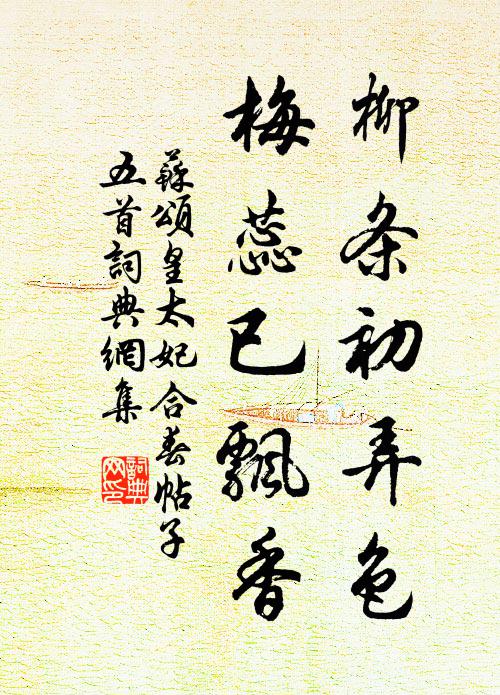 柳条初弄色
梅蕊已飄香
蘇頌皇太妃合春帖子
五首詞典網集
詞典网印